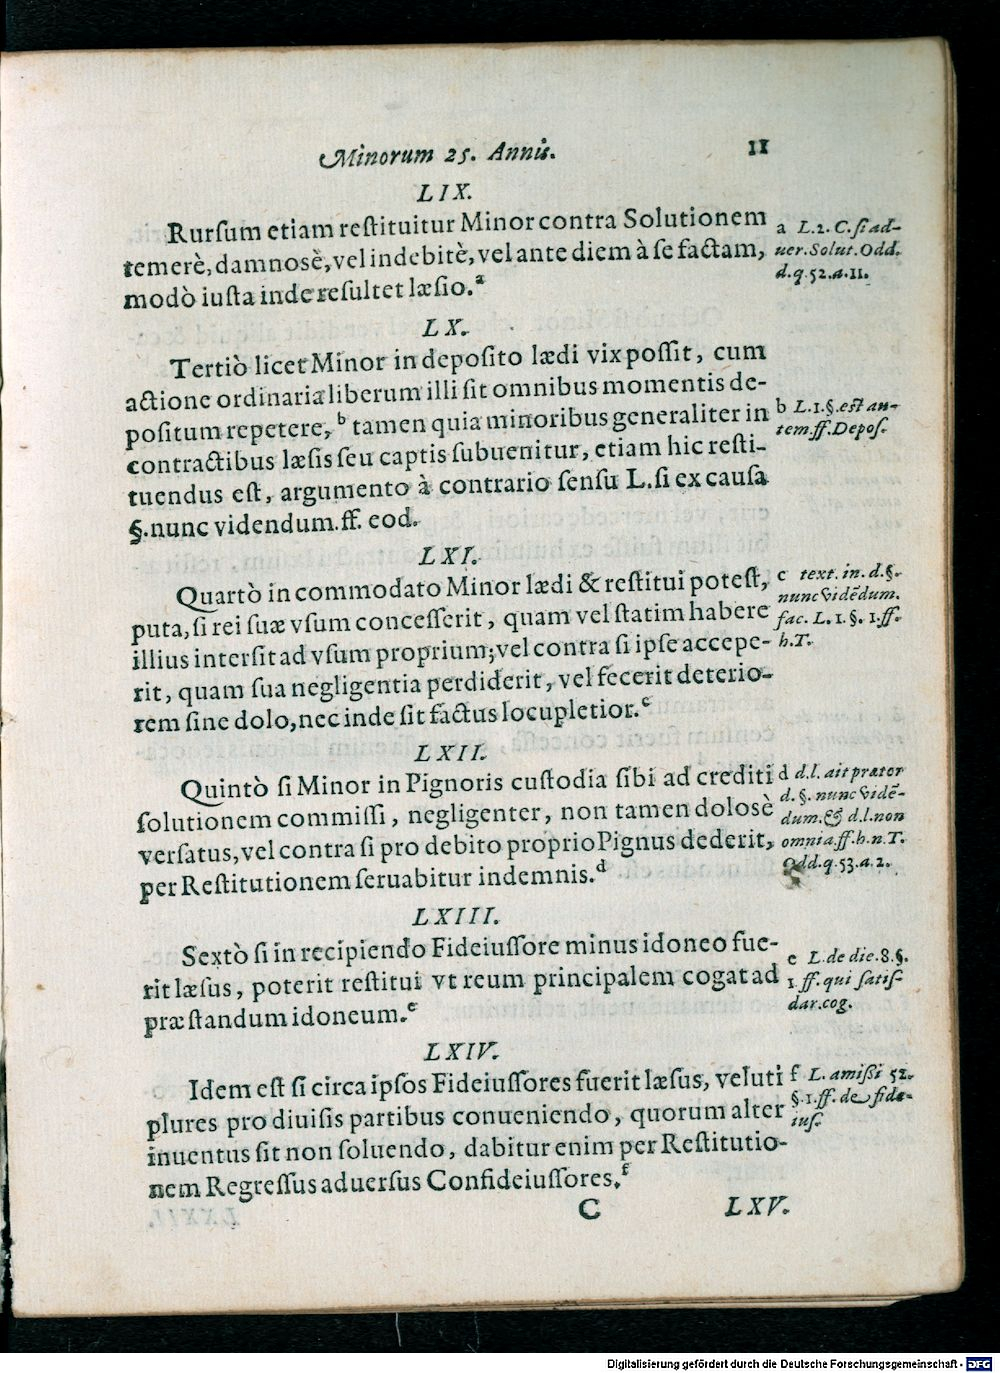 Minorum 25. Annis. 11
LIX.
Rurſum etiam reſtituitur Minor contra Solutionem
temerè, damnosè, vel indebitè, vel ante diem à ſe factam,
modò iuſta inde reſultet læſio.ᵃ
a L. 2. C. ſi ad-
uer. Solut. Odd.
d. q. 52. a. 11.
LX.
Tertiò licet Minor in depoſito lædi vix poſſit, cum
actione ordinaria liberum illi ſit omnibus momentis de-
poſitum repetere,ᵇ tamen quia minoribus generaliter in
contractibus læſis ſeu captis ſubuenitur, etiam hic reſti-
tuendus eſt, argumento à contrario ſenſu L. ſi ex cauſa
§. nunc videndum. ff. eod.
b L. 1. §. eſt au-
tem. ff. Depoſ.
LXI.
Quartò in commodato Minor lædi & reſtitui poteſt,
puta, ſi rei ſuæ vſum conceſſerit, quam vel ſtatim habere
illius interſit ad vſum proprium; vel contra ſi ipſe accepe-
rit, quam ſua negligentia perdiderit, vel fecerit deterio-
rem ſine dolo, nec inde ſit factus locupletior.ᶜ
c text. in. d. §.
nunc vidēdum.
fac. L. 1. §. 1. ff.
h. T.
LXII.
Quintò ſi Minor in Pignoris cuſtodia ſibi ad crediti
ſolutionem commiſſi, negligenter, non tamen dolosè
verſatus, vel contra ſi pro debito proprio Pignus dederit,
per Reſtitutionem ſeruabitur indemnis.ᵈ
d d. l. ait prætor
d. §. nunc vidē-
dum. & d. l. non
omnia. ff. h. n. T.
Odd. q. 53. a. 2.
LXIII.
Sextò ſi in recipiendo Fideiuſſore minus idoneo fue-
rit læſus, poterit reſtitui vt reum principalem cogat ad
præſtandum idoneum.ᵉ
e L. de die. 8. §.
1 ff. qui ſatiſ-
dar. cog.
LXIV.
Idem eſt ſi circa ipſos Fideiuſſores fuerit læſus, veluti
plures pro diuiſis partibus conueniendo, quorum alter
inuentus ſit non ſoluendo, dabitur enim per Reſtitutio-
nem Regreſſus aduerſus Confideiuſſores.ᶠ
f L. amiſſi 52.
§. 1. ff. de fide-
iuſ.
C LXV.
Digitalisierung gefördert durch die Deutsche Forschungsgemeinschaft - DFG